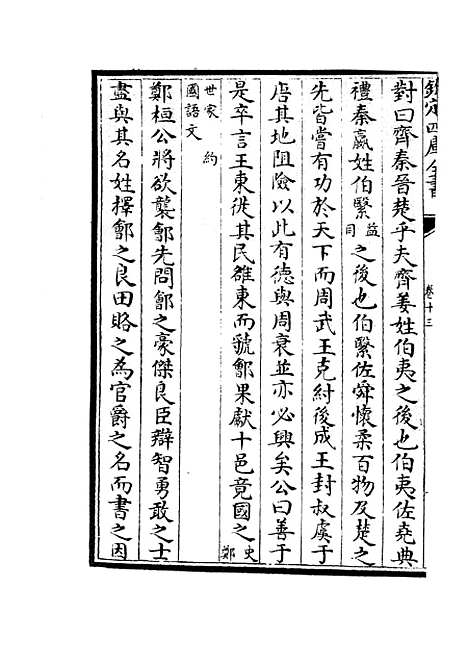 欽定四庫全書
卷十三
對曰齊秦晉楚乎夫齊姜姓伯夷之後也伯夷佐堯典
禮秦嬴姓伯繄益同之後也伯繄佐舜懷柔百物及楚之
先皆嘗有功於天下而周武王克紂後成王封叔虞于
唐其地阻險以此有德與周衰並亦必興矣公曰善于
是卒言王東徙其民雒東而虢鄶果獻十邑竟國之史鄭
世家約
國語文
鄭桓公將欲襲鄶先問鄶之豪傑良臣辯智勇敢之士
盡與其名姓擇鄶之良田賂之為官爵之名而書之因